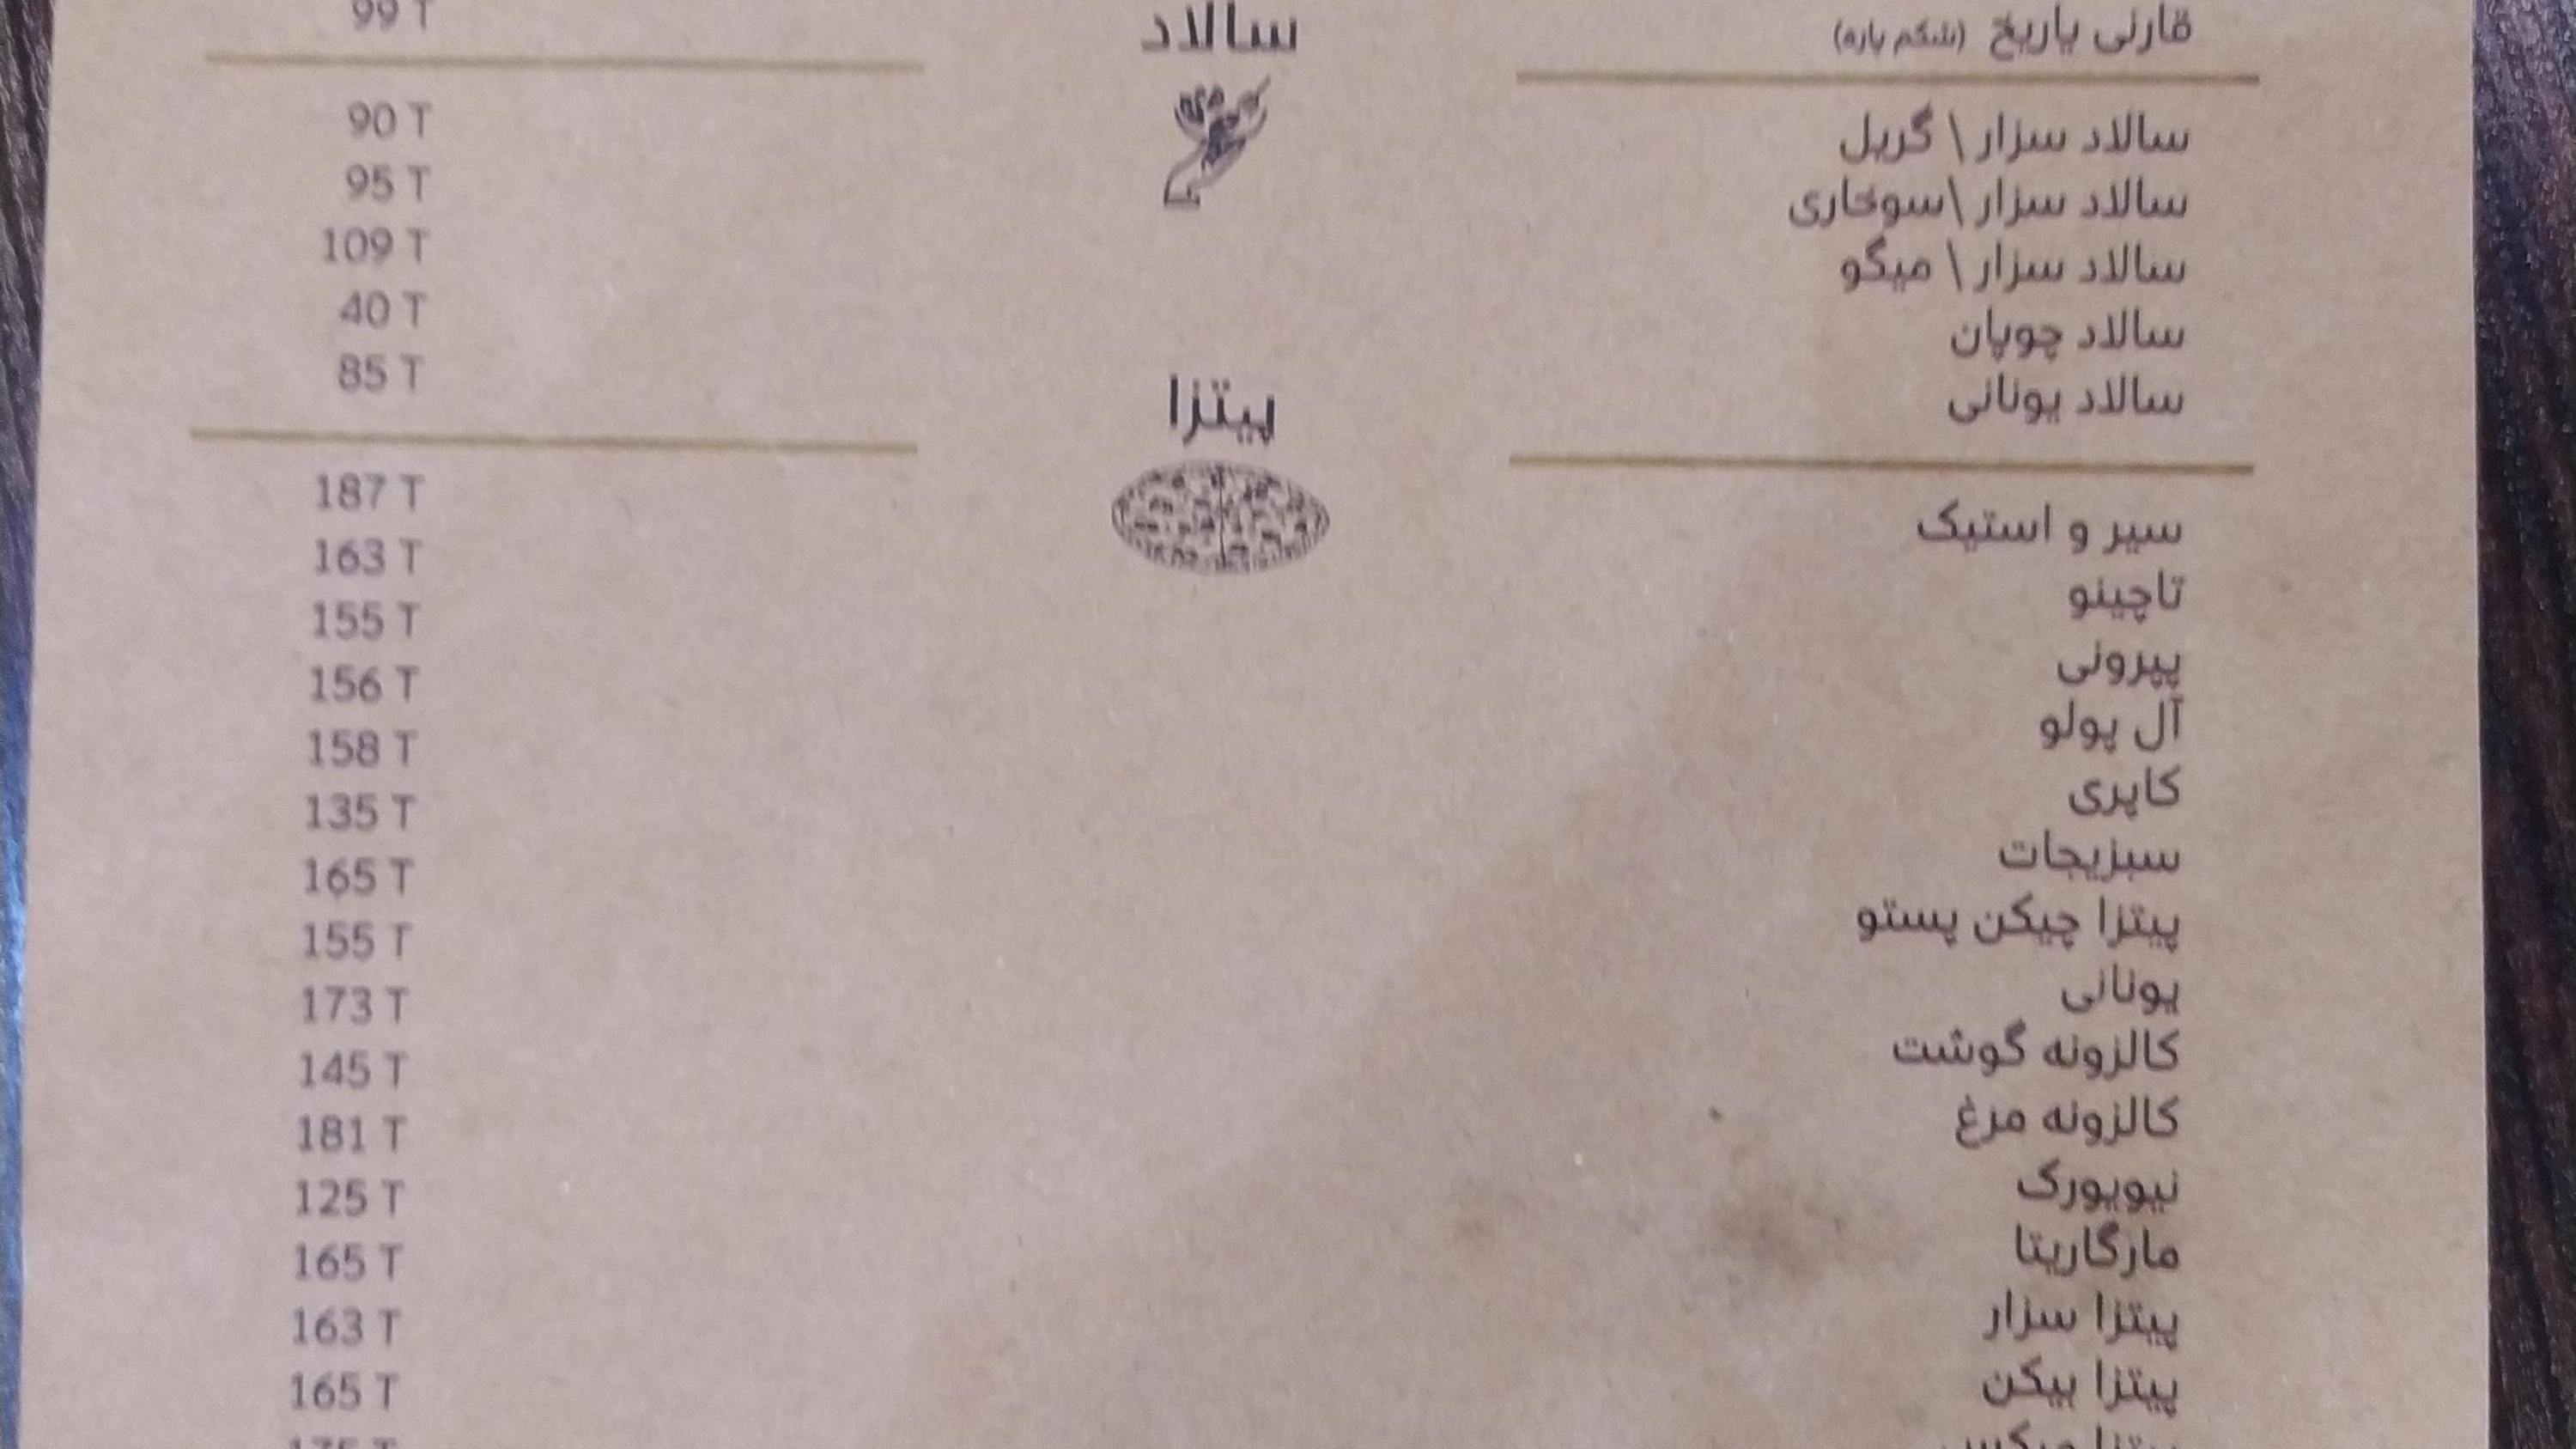 قارنی یاریخ (شکم پاره) 99 T
سالاد
سالاد سزار \ گریل 90 T
سالاد سزار \سوخاری 95 T
سالاد سزار \ میگو 109 T
سالاد چوپان 40 T
سالاد یونانی 85 T
پیتزا
سیر و استیک 187 T
تاچینو 163 T
پپرونی 155 T
آل پولو 156 T
کاپری 158 T
سبزیجات 135 T
پیتزا چیکن پستو 165 T
یونانی 155 T
کالزونه گوشت 173 T
کالزونه مرغ 145 T
نیویورک 181 T
مارگاریتا 125 T
پیتزا سزار 165 T
پیتزا بیکن 163 T
165 T